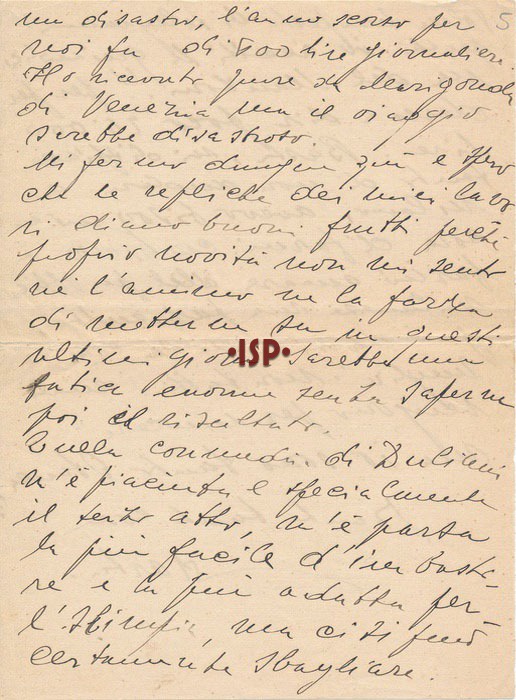 5
un disastro, l'anno scorso per
noi fu di 800 lire giornaliere.
Ho ricevuto pure da Marigonda
di Venezia ma il viaggio
sarebbe disastroso.
Mi fermo dunque qui e spero
che le repliche dei miei lavo
ri diano buoni frutti perchè
proprio novità non mi sento
nè l'animo nè la forza
di metterne su in questi
ultimi giorni. Sarebbe una
fatica enorme senza saperne
poi il risultato.
Quella commedia di Duliani
m'è piaciuta e specialmente
il terzo atto, m'è parsa
la più facile d'imbasti
re e la più adatta per
l', ma ci si può
certamente sbagliare.
·ISP·